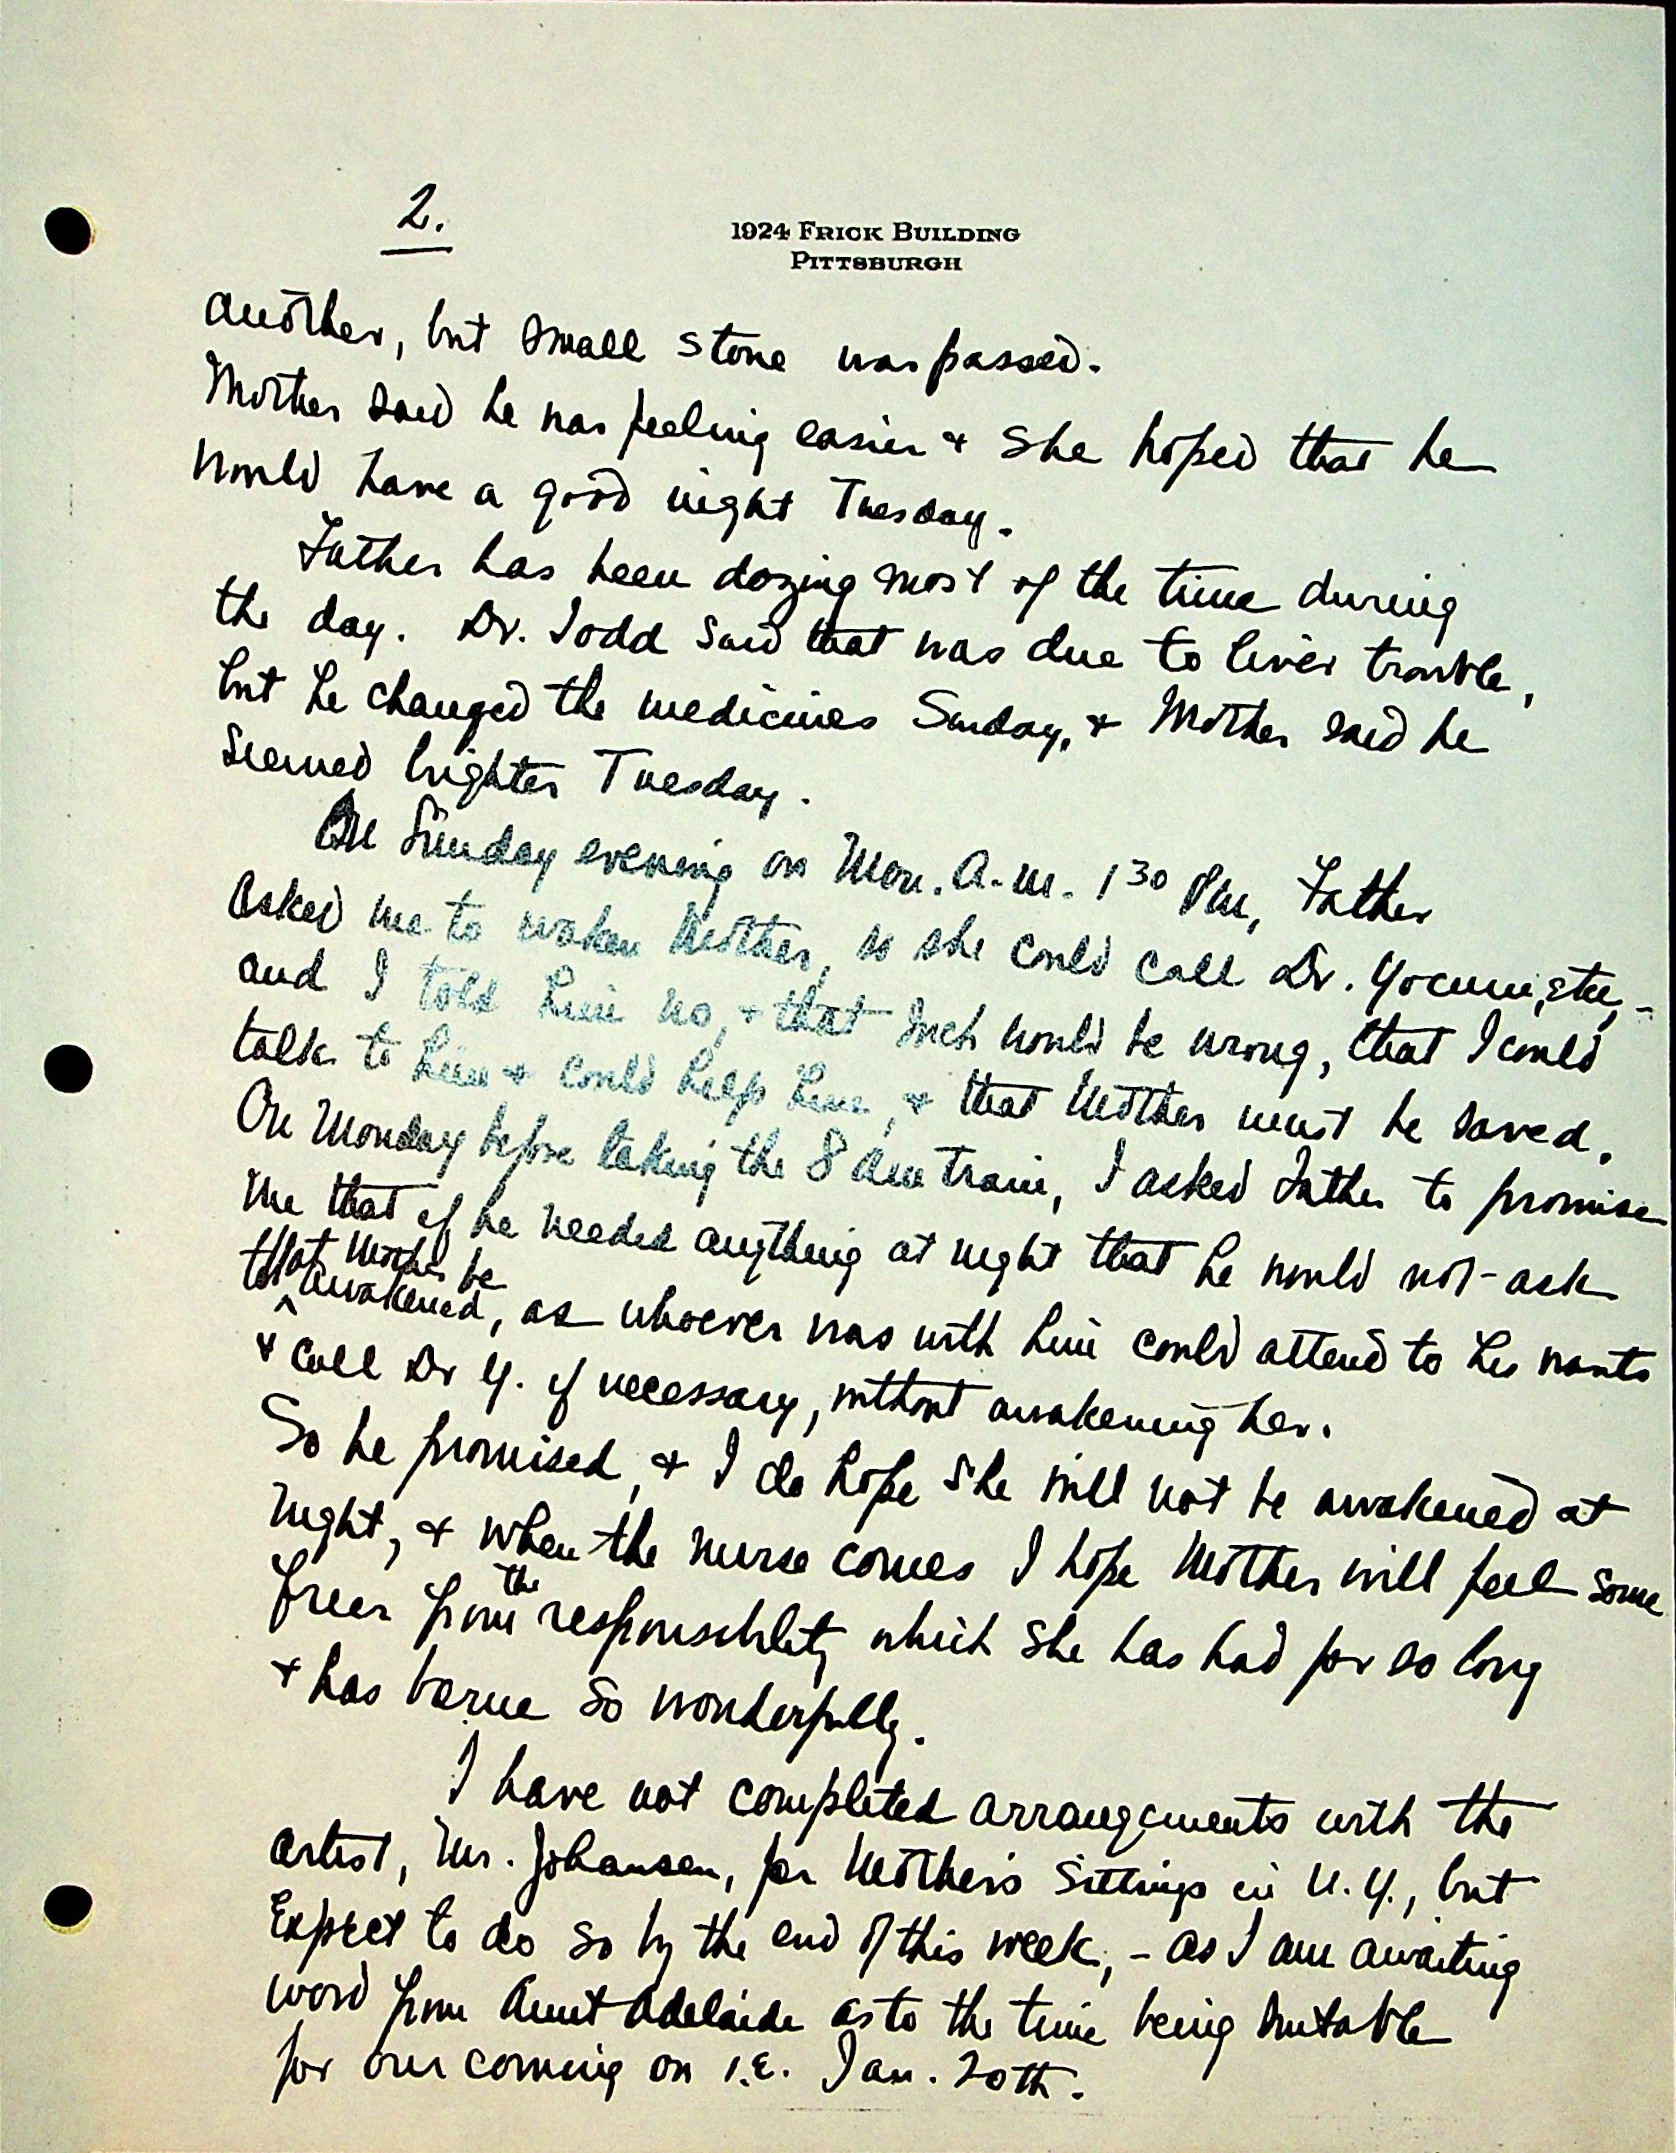 2.
1924 FRICK BUILDING
PITTSBURGH
another, but small stone was passed.
Mother said he was feeling easier & she hoped that he
would have a good night Tuesday.
Father has been dozing most of the time during
the day. Dr. Todd said that was due to liver trouble,
but he changed the medicines Sunday, & Mother said he
seemed brighter Tuesday.
On Sunday evening or Mon. A.M. 1 30 Father
asked me to waken Mother, so she could call Dr. Yocum, etc, -
and I told him no, & that such would be wrong, that I could
talk to him & could help him, & that Mother must be saved.
On Monday before taking the 8 am train, I asked Father to promise
me that if he needed anything at night that he would not ask
that Mother be
awakened, as whoever was with him could attend to his wants
& call Dr Y. if necessary, without awakening her.
So he promised, & I do hope she will not be awakened at
night, & when the nurse comes I hope Mother will feel some
freer from the responsibility which she has had for so long
& has borne so wonderfully.
I have not completed arrangements with the
artist, Mr. Johansen, for Mother's sittings in N.Y., but
expect to do so by the end of this week, - as I am awaiting
word from Aunt Adelaide as to the time being suitable
for our coming on i.e. Jan. 20th.